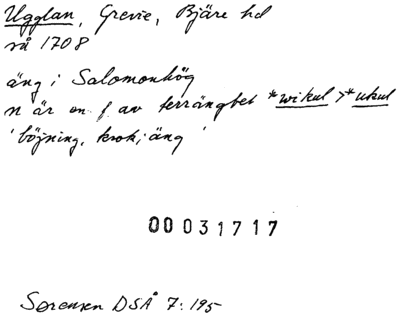 Ugglan, Grevie, Bjäre hd
rå 1708
äng i Salomonhög
n är en f. av terrängbet *wikul > *ukul
'böjning, krok; äng'
00031717
Sørensen DSÅ 7:195